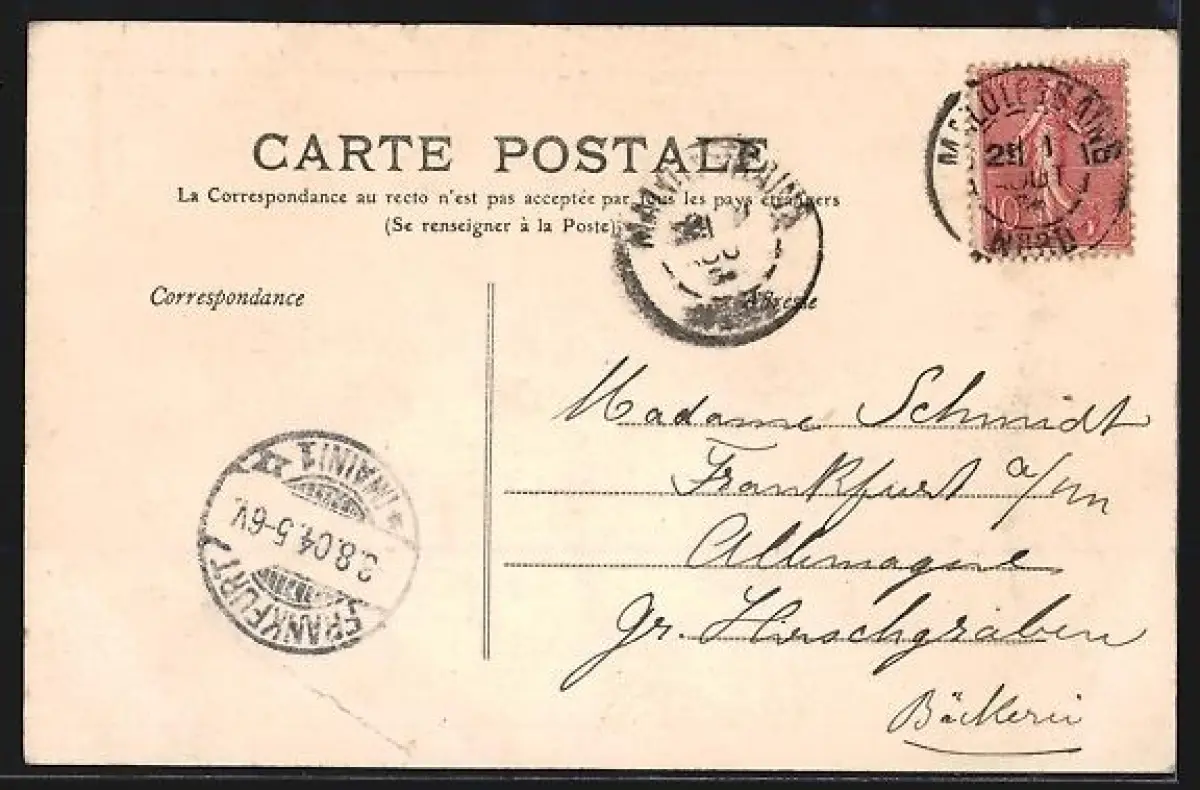 CARTE POSTALE
La Correspondance au recto n'est pas acceptée par tous les pays étrangers
(Se renseigner à la Poste)
Correspondance
Adresse
Madame Schmidt
Frankfurt a/m
Allemagne
Gr. Hirschgraben
Bäckerei
FRANKFURT
(MAIN) 1
3.8.04.5-6V.
NORD
10